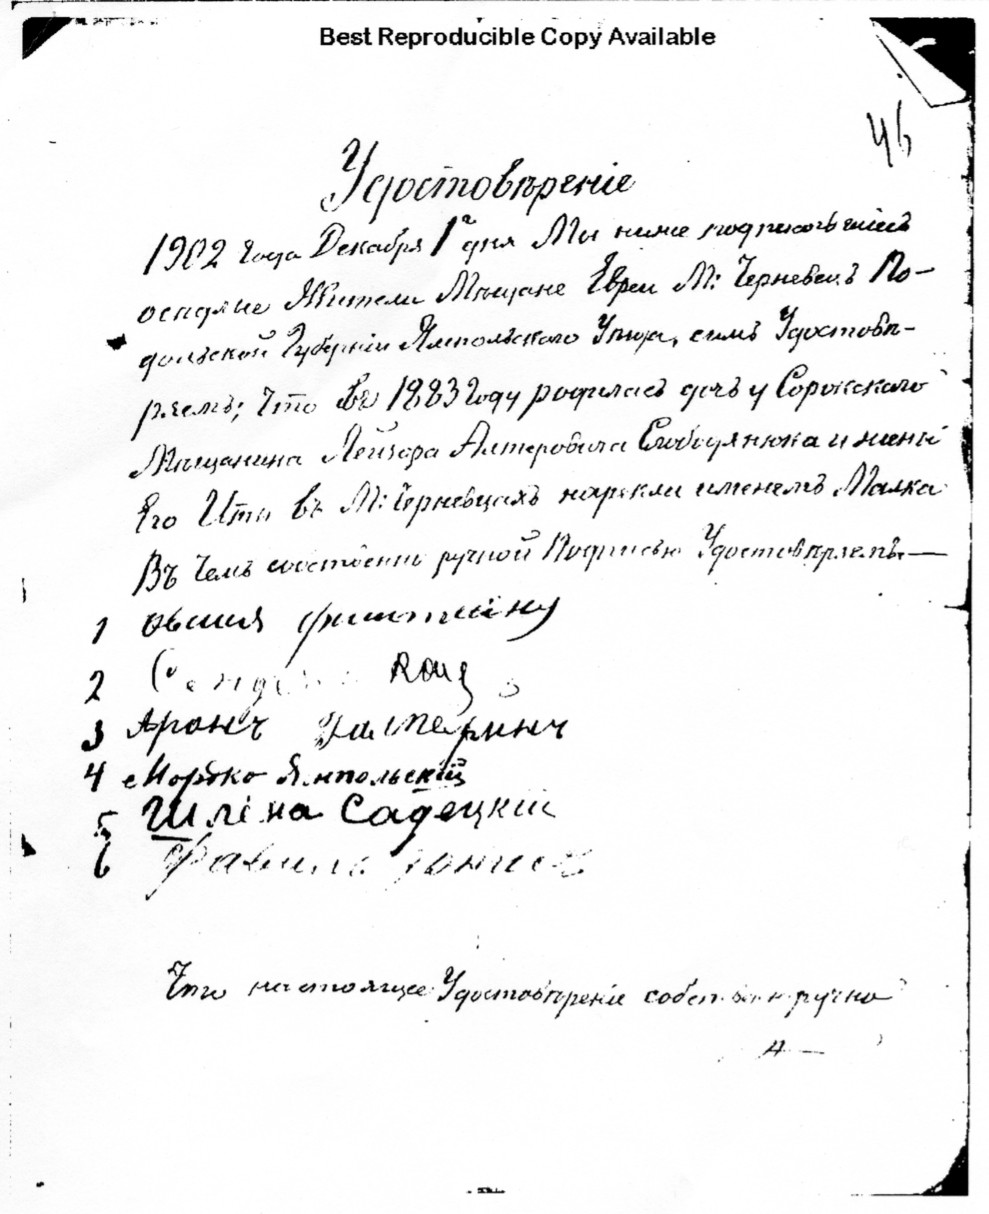 Best Reproducible Copy Available
46
Удостовѣреніе
1902 года Декабря 1го дня Мы ниже подписавшіеся
оседлые Жители Мѣщане Евреи М: Черневецъ По-
дольской Губерніи Ямпольскаго Уѣзда, симъ Удостовѣ-
ряемъ; Что въ 1883 году родилась дочь у Сорокскаго
Мѣщанина Лейзора Алтеровича Слободянюка и жены
Его Иты въ М: Черневцахъ нарекли именемъ Малка
Въ чемъ собственно ручной Подписью Удостовѣряемъ—
1 Овшия
2
3 Аронъ Галперинъ
4 Мордко Ямпольскій
5 Шлёма Садецкій
6
Что настоящее Удостовѣреніе собственноручно